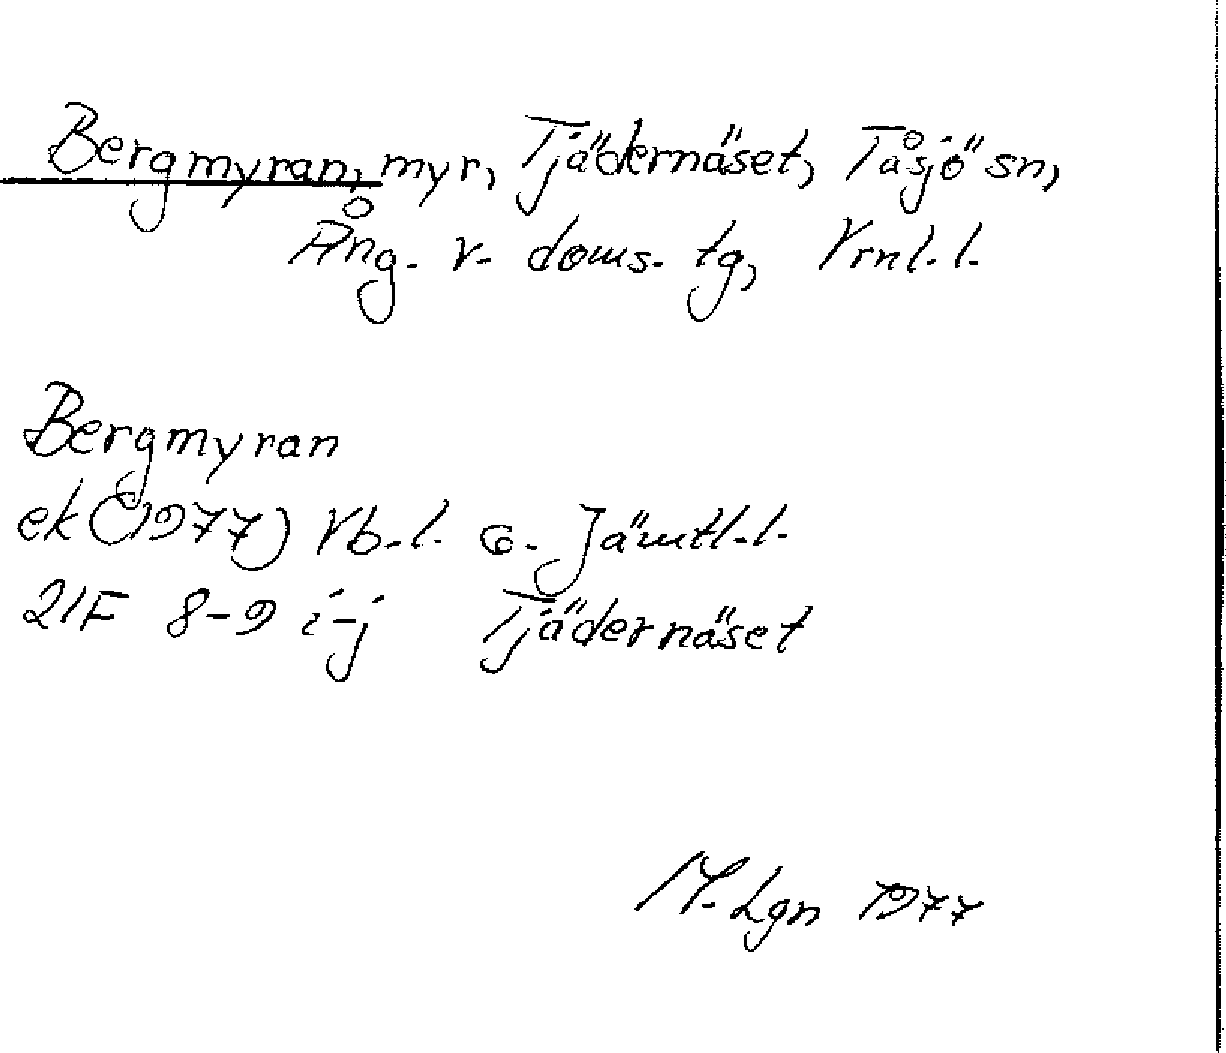 Bergmyran, myr, Tjädernäset, Tåsjö sn,
Ång. v. doms. tg, Vrnl. l.
Bergmyran
ek (1977) Vb. l. o. Jämtl. l.
21F 8-9 i-j Tjädernäset
M. Lgn 1977